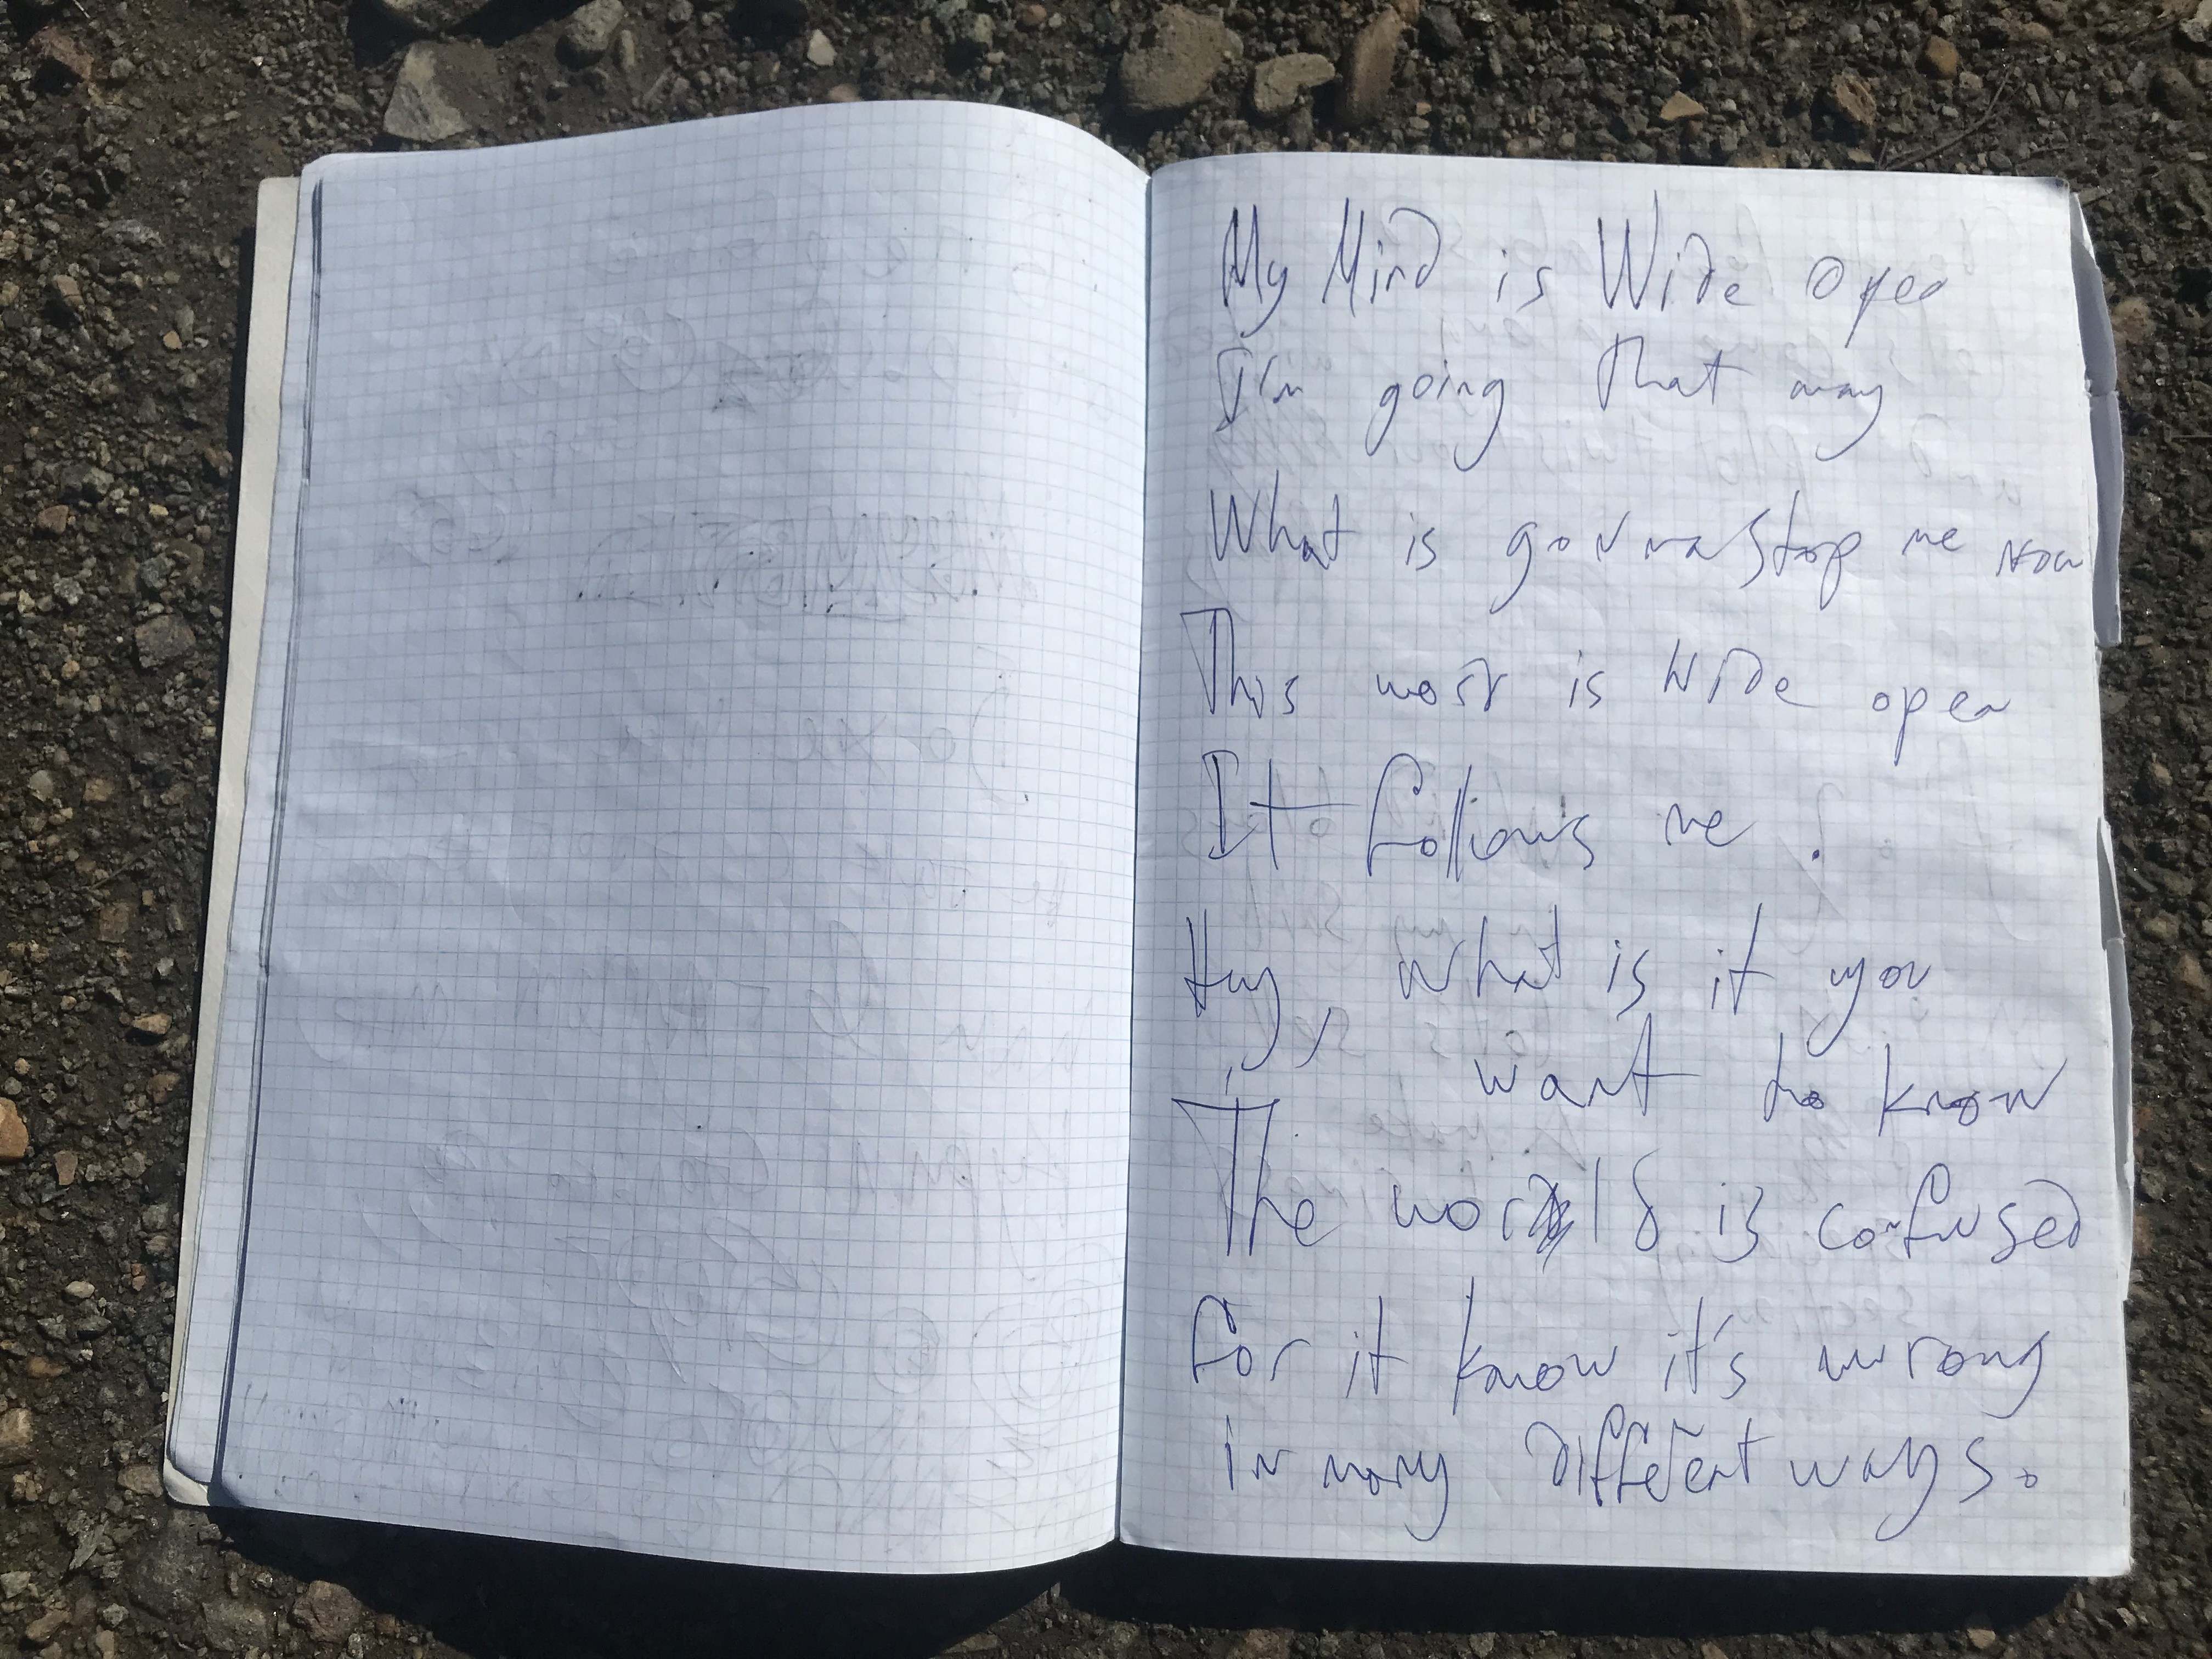 My Mind is Wide Open
I'm going that way
What is gonna stop me now
This is Wide open
It follows me.
Hey, what is it you
want to know
The world is confused
for it know it's wrong
in many different ways.